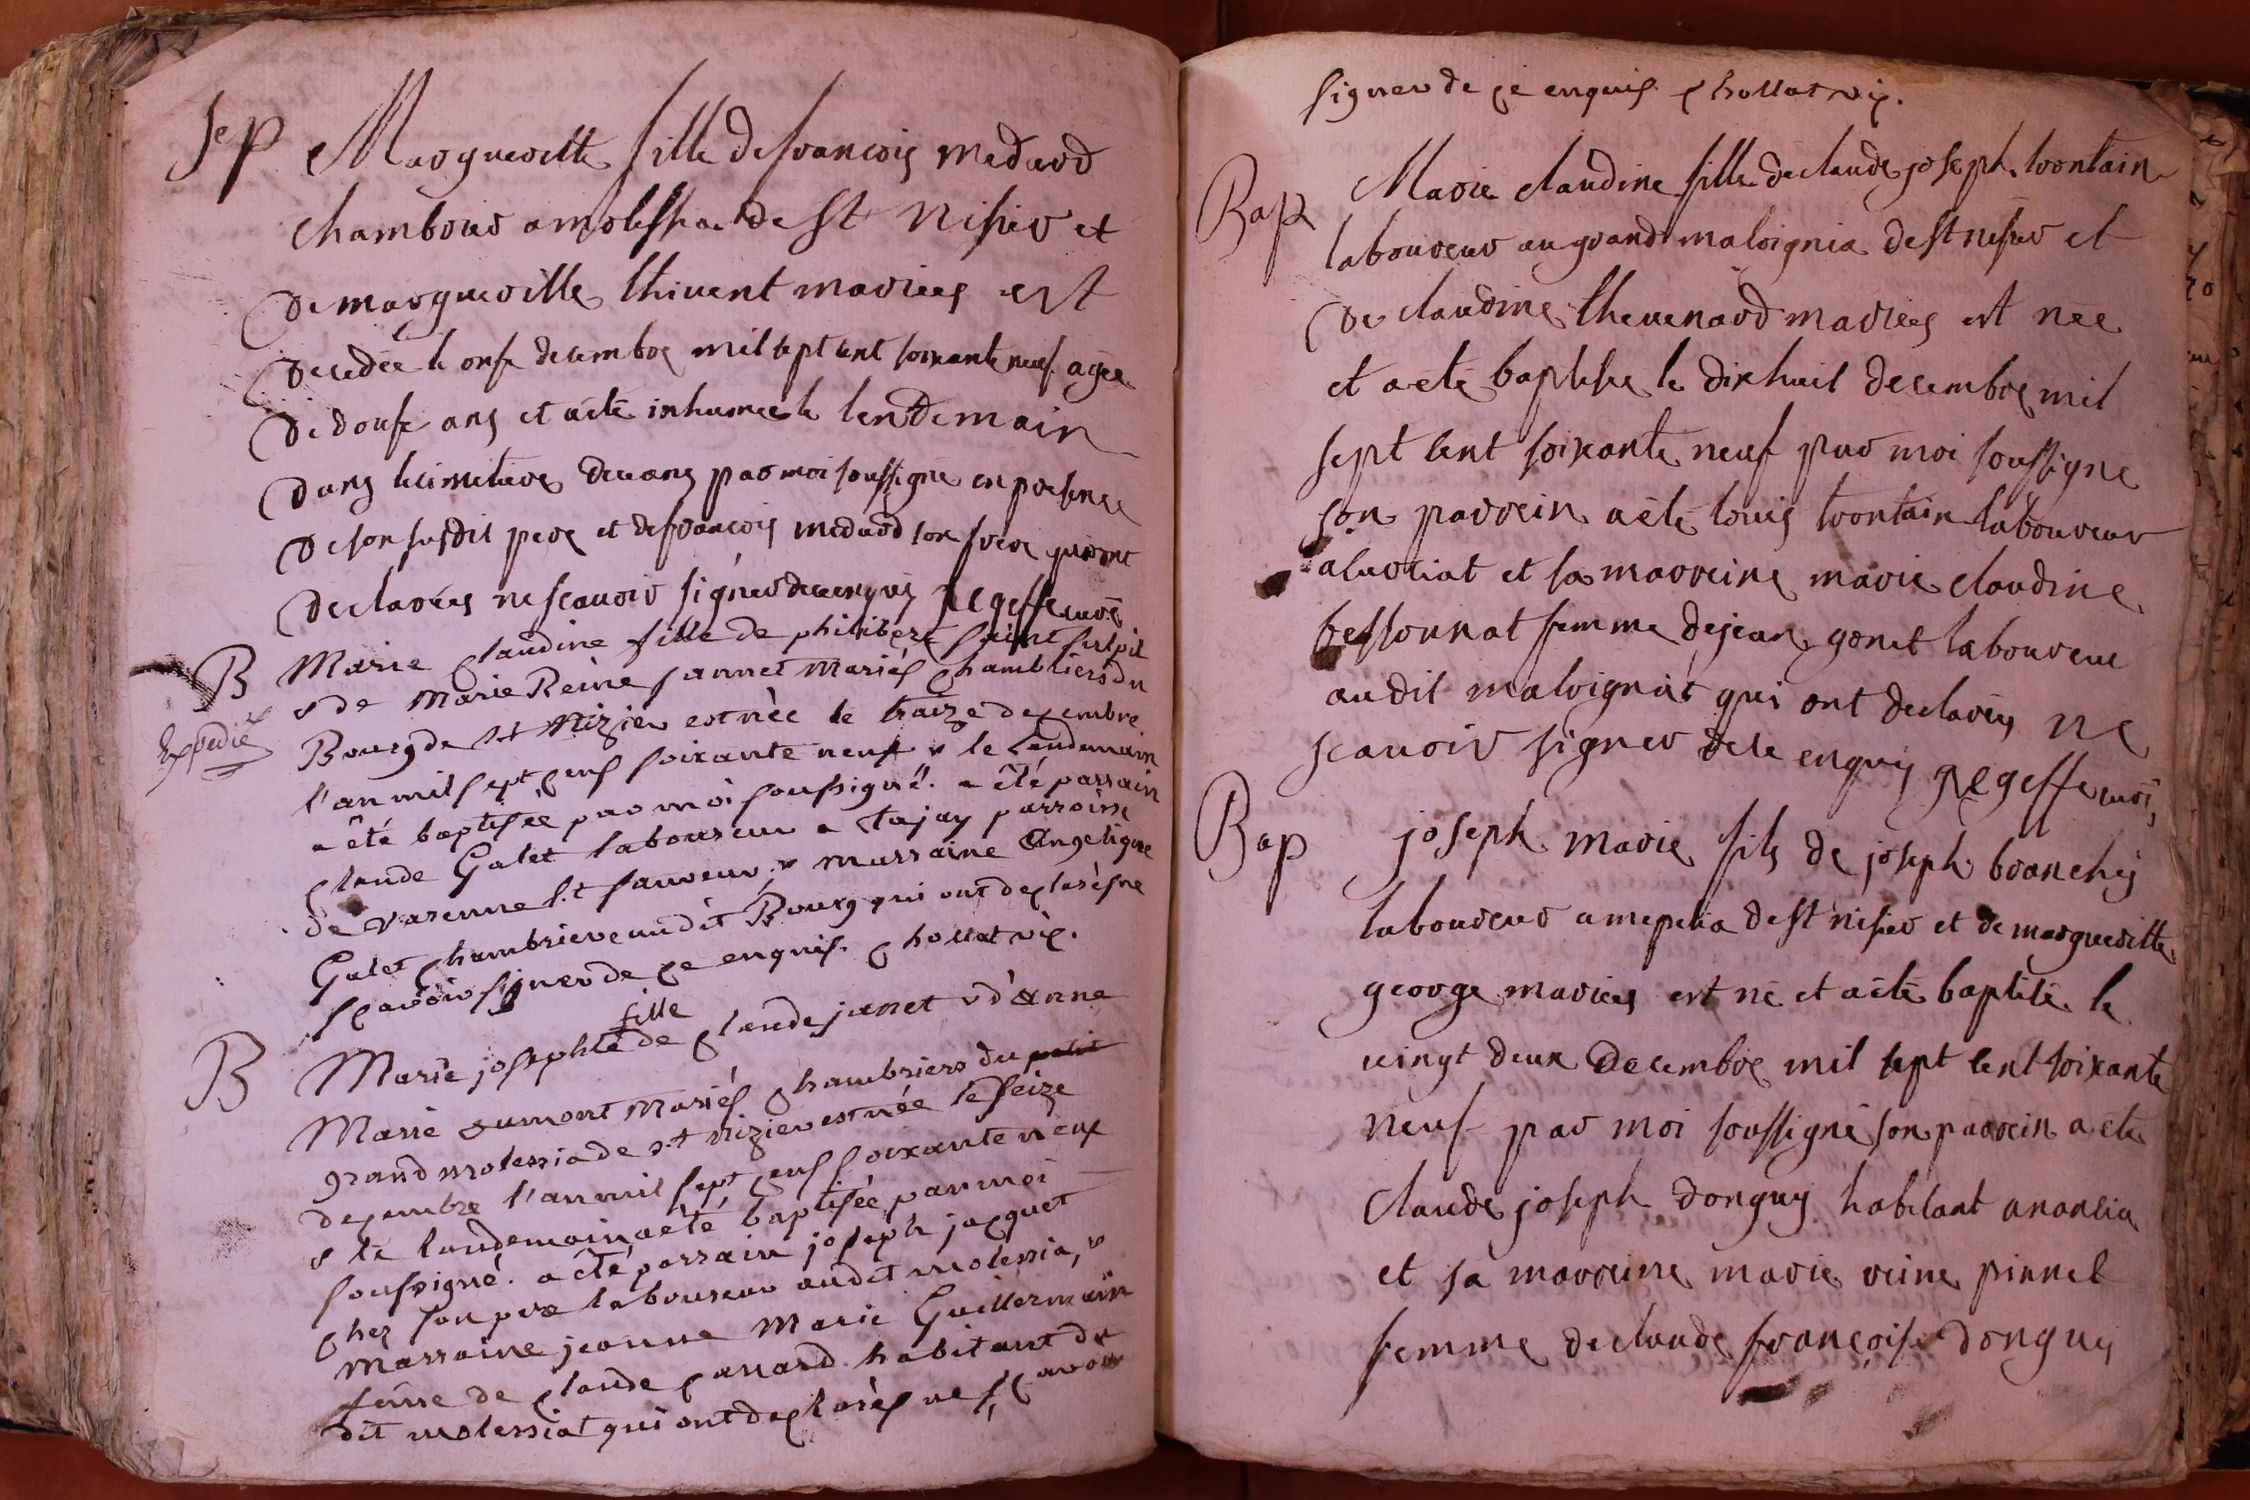 Sep Margueritte fille de francois medard
chambrier a molissia de St Nisier et
de margueritte thivent mariees est
decedée le onse decembre mil sept cent soixante neuf agée
de douse ans et a été inhumée le lendemain
dans le cimetiere ceans par moi soussigné en presence
de son susdit pere et de francois medard son frere qui ont
declarées ne scauoir signer de ce enquis
B Marie Claudine fille de philibert
& de Marie Reine Mariés Chambriers du
Expedié
Bourg de St Nizier est née le traize decembre
l'an mil sept cens soixante neuf & le lendemain
a été baptisée par moi soussigné. a été parrain
Claude Galet laboureur a tajay parroisse
de varenne St Sauveur, & marraine Angelique
Galet Chambriere audit Bourg qui ont declarés ne
sçavoir signer de ce enquis. Chollat vic.
B Marie josephte fille de Claude janet & d'Anne
Marie Mariés Chambriers du petit
grand molessia de St Nizier est née le seize
decembre l'an mil sept cens soixante neuf
& le landemain a été baptisée par moi
soussigné. a été parrain joseph jacquet
chez son pere laboureur audit molessia, &
marraine jeanne Marie Guillermain
feme de Claude canard habitant du
dit molessiat qui ont declarés ne sçavoir
signer de ce enquis Chollat vic.
Bap Marie claudine fille de claude joseph trontain
laboureur au grand maloignia de st nisier et
de claudine thevenard mariees est née
et a eté baptisée le dixhuit decembre mil
sept cent soixante neuf par moi soussigné
son parrein a été louis trontain laboureur
et sa marreine marie claudine
bessonnat femme de jean gonet laboureur
audit maloignat qui ont declarées ne
scauoir signer de ce enquis
Bap joseph marie fils de joseph branchy
laboureur a de st nisier et de margueritte
george mariees est né et a été baptisé le
vingt deux decembre mil sept cent soixante
neuf par moi soussigné son parrein a eté
Claude joseph donguy habitant
et sa marreine marie reine pinnet
femme de claude françois donguy